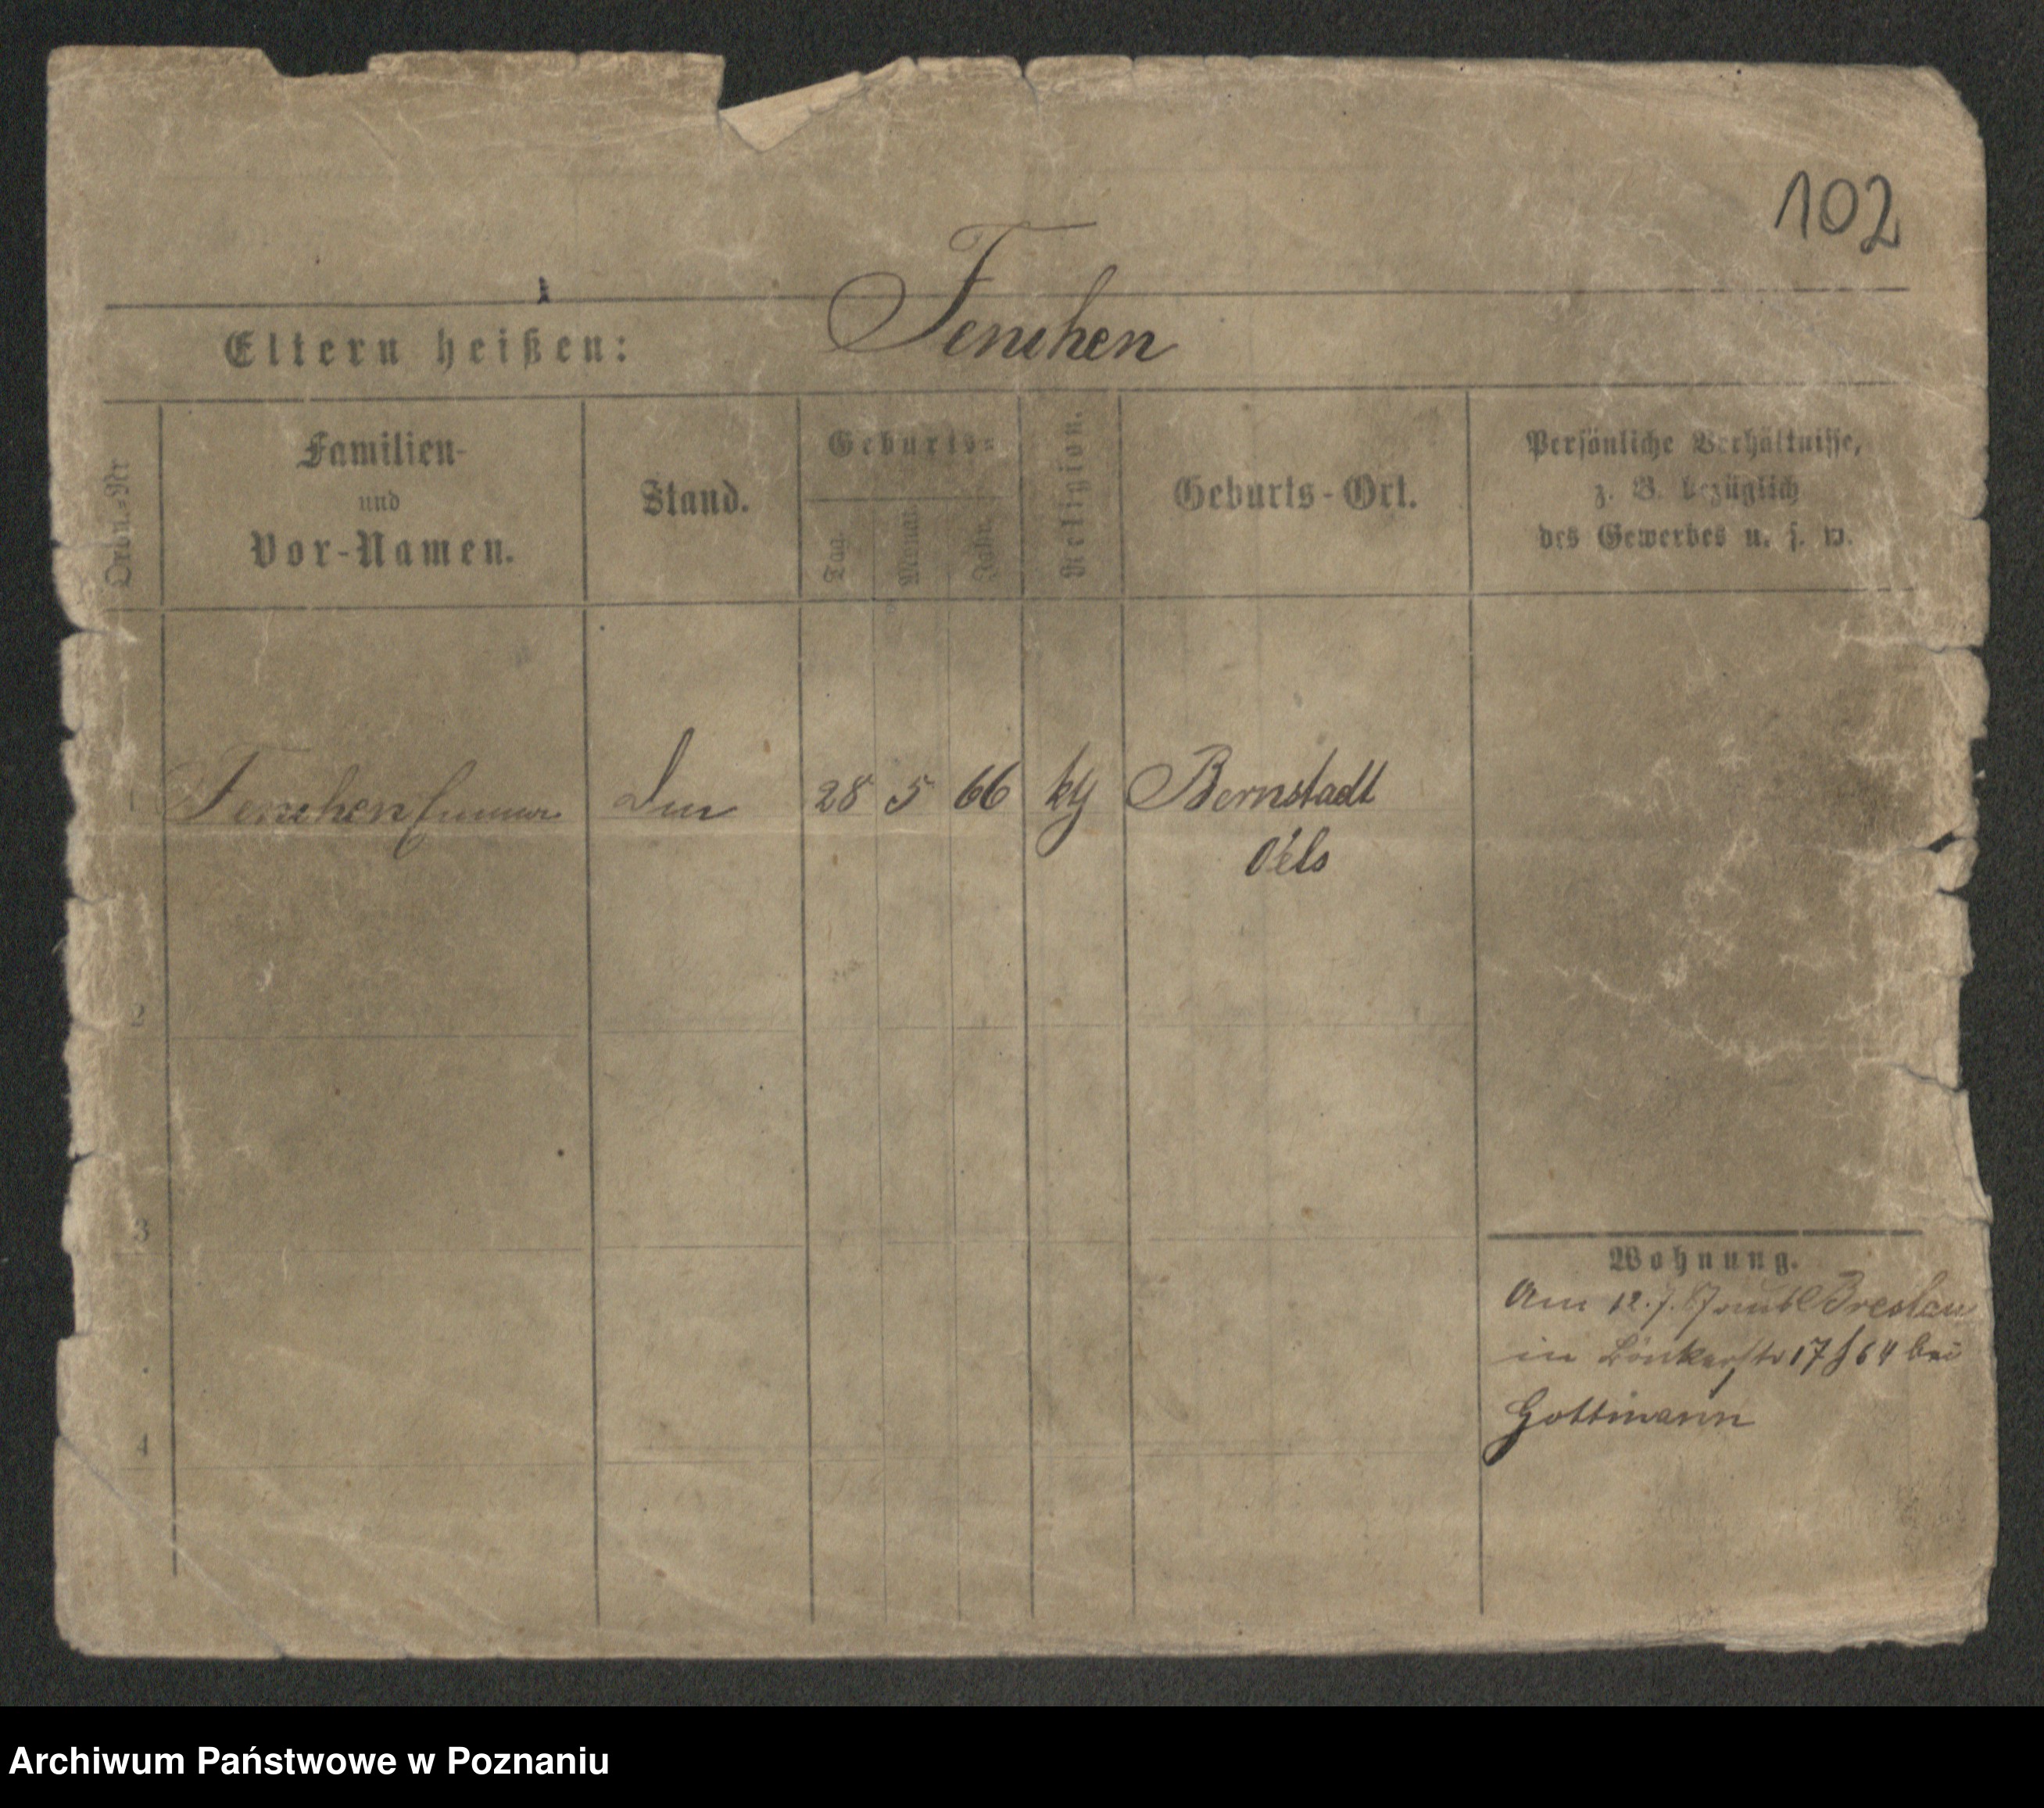 102
Eltern heißen: Fenchen
Ordn.-Nr
Familien-
und
Vor-Namen.
Stand.
Geburts-
Tag.
Monat.
Jahr.
Religion.
Geburts-Ort.
Persönliche Verhältnisse,
z. B. bezüglich
des Gewerbes u. s. w.
1 Fenchen 28 5 66 Bernstadt
Oels
2
3
Wohnung.
Am 12. 7. Breslau
in 17 64 bei
Gottmann
4
Archiwum Państwowe w Poznaniu